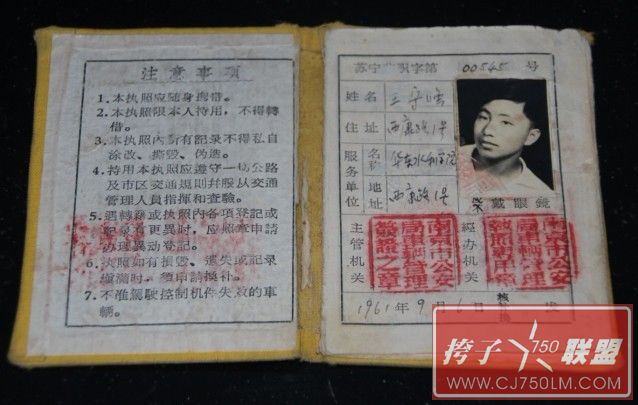 注意事项
1. 本执照应随身携带。
2. 本执照限本人持用，不得轉
借。
3. 本执照內所有記录不得私自
涂改、撕毁、伪造。
4. 持用本执照应遵守一切公路
及市区交通規则并服从交通
管理人员指揮和查驗。
5. 遇轉籍或执照內各項登記或
記录有更異时，应照章申請
办理異动登記。
6. 执照如有損毁、遺失或記录
填滿时，須申請換补。
7. 不准駕駛控制机件失效的車
輛。
苏宁 字第 00545 号
姓名 王
住址 西康路1号
服务单位 名称 华东水利学院
地址 西康路1号
戴眼鏡
主管机关 南京市公安局車輛管理 發證之章
經办机关 南京市公安局車輛 理
1961年9月6日
750
挎子 联盟
WWW.CJ750LM.COM